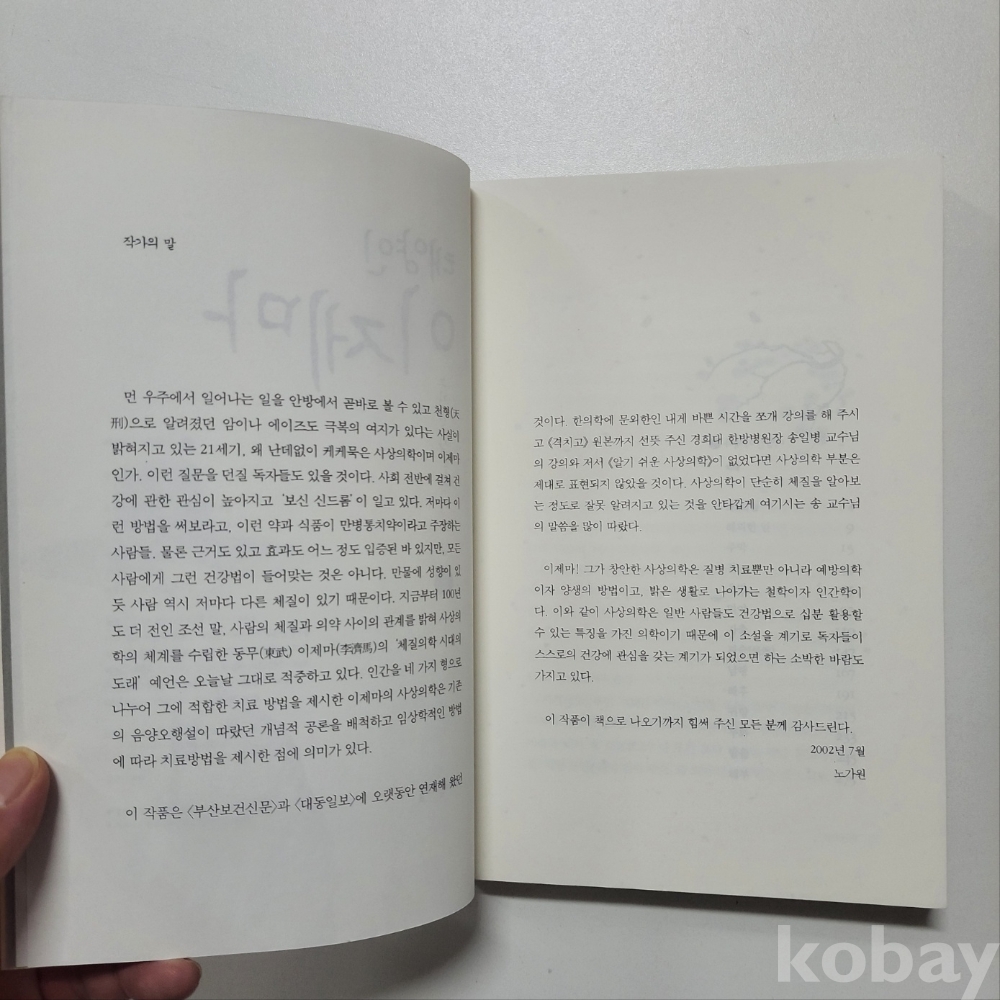 작가의 말
태양인
이제마
먼 우주에서 일어나는 일을 안방에서 곧바로 볼 수 있고 천형(天
刑)으로 알려졌던 암이나 에이즈도 극복의 여지가 있다는 사실이
밝혀지고 있는 21세기, 왜 난데없이 케케묵은 사상의학이며 이제마
인가. 이런 질문을 던질 독자들도 있을 것이다. 사회 전반에 걸쳐 건
강에 관한 관심이 높아지고 '보신 신드롬'이 일고 있다. 저마다 이
런 방법을 써보라고, 이런 약과 식품이 만병통치약이라고 주장하는
사람들. 물론 근거도 있고 효과도 어느 정도 입증된 바 있지만, 모든
사람에게 그런 건강법이 들어맞는 것은 아니다. 만물에 성향이 있
듯 사람 역시 저마다 다른 체질이 있기 때문이다. 지금부터 100년
도 더 전인 조선 말, 사람의 체질과 의약 사이의 관계를 밝혀 사상의
학의 체계를 수립한 동무(東武) 이제마(李濟馬)의 '체질의학 시대의
도래' 예언은 오늘날 그대로 적중하고 있다. 인간을 네 가지 형으로
나누어 그에 적합한 치료 방법을 제시한 이제마의 사상의학은 기존
의 음양오행설이 따랐던 개념적 공론을 배척하고 임상학적인 방법
에 따라 치료방법을 제시한 점에 의미가 있다.
이 작품은 〈부산보건신문〉과 〈대동일보〉에 오랫동안 연재해 왔던
것이다. 한의학에 문외한인 내게 바쁜 시간을 쪼개 강의를 해 주시
고 《격치고》 원본까지 선뜻 주신 경희대 한방병원장 송일병 교수님
의 강의와 저서 《알기 쉬운 사상의학》이 없었다면 사상의학 부분은
제대로 표현되지 않았을 것이다. 사상의학이 단순히 체질을 알아보
는 정도로 잘못 알려지고 있는 것을 안타깝게 여기시는 송 교수님
의 말씀을 많이 따랐다.
이제마! 그가 창안한 사상의학은 질병 치료뿐만 아니라 예방의학
이자 양생의 방법이고, 밝은 생활로 나아가는 철학이자 인간학이
다. 이와 같이 사상의학은 일반 사람들도 건강법으로 십분 활용할
수 있는 특징을 가진 의학이기 때문에 이 소설을 계기로 독자들이
스스로의 건강에 관심을 갖는 계기가 되었으면 하는 소박한 바람도
가지고 있다.
이 작품이 책으로 나오기까지 힘써 주신 모든 분께 감사드린다.
2002년 7월
노가원
kobay